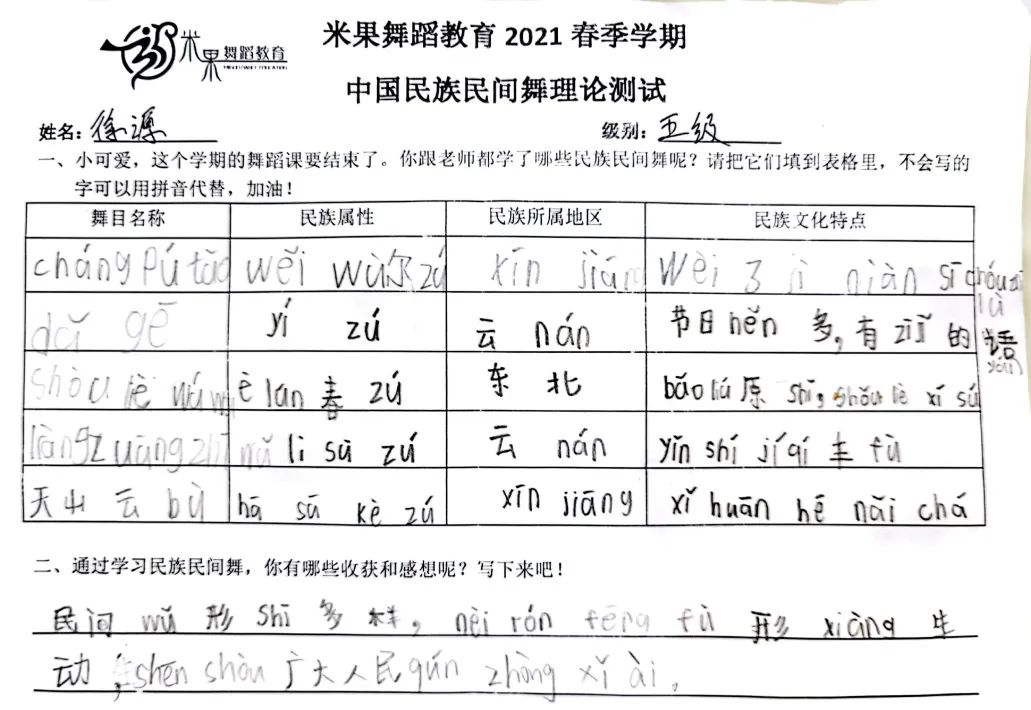 米果舞蹈教育
米果舞蹈教育 2021 春季学期
中国民族民间舞理论测试
姓名：徐源 级别：五级
一、小可爱，这个学期的舞蹈课要结束了。你跟老师都学了哪些民族民间舞呢？请把它们填到表格里，不会写的
字可以用拼音代替，加油！
舞目名称 民族属性 民族所属地区 民族文化特点
cháng Pú tǎo wěi wú尔zú xīn jiāng Wèi 了 jì niàn sī chóu zī lù
dǎ gē yí zú 云 nán 节日 hěn 多，有 zìjǐ 的 语 yán
shòu liè wú è lún 春 zú 东 北 bǎo liú 原 shǐ，shǒu liè xí sú
liàng zuāng zhī lì sù zú 云 nán yǐn shí jíqí 丰 fù
天山 云 bù hā sā kè zú xīn jiāng xǐ huān hē nǎi chá
二、通过学习民族民间舞，你有哪些收获和感想呢？写下来吧！
民间 wǔ 形 shì 多 样，nèi rón fēng fù 形 xiàng 生
动，shēn shòu 广大人民 qún zhòng xǐ ài。